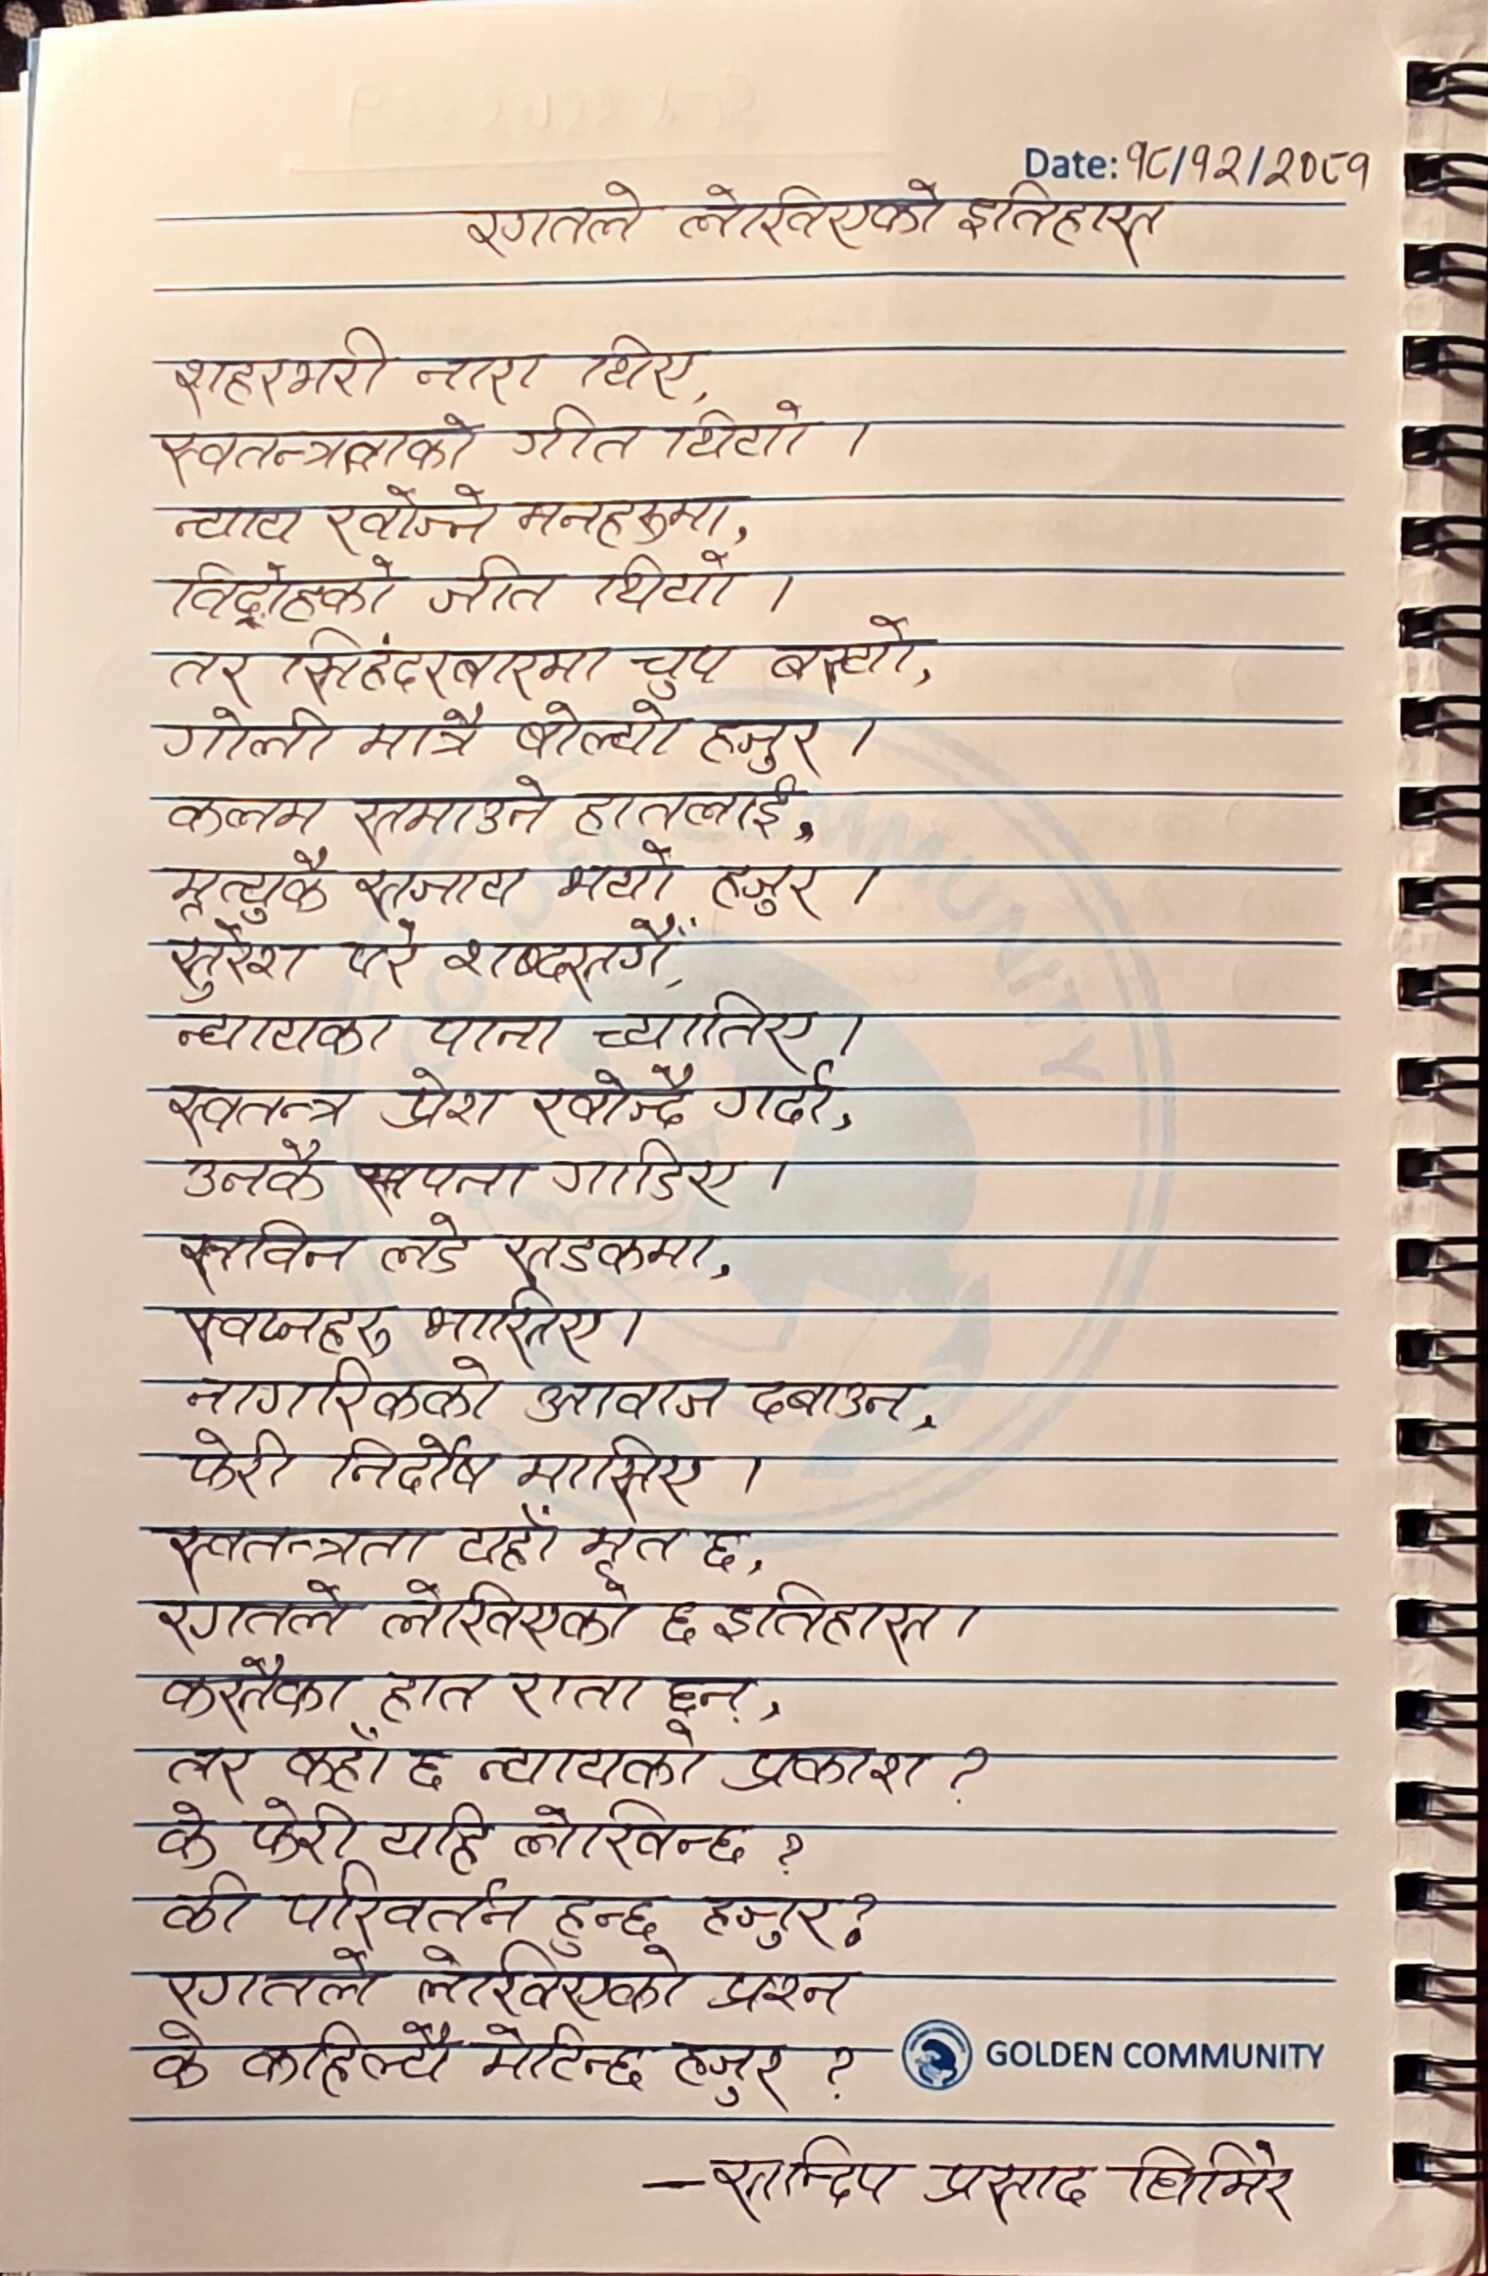 Date: १८/१२/२०८१
रगतले लेखिएको इतिहास
शहरभरी नारा थिए,
स्वतन्त्रताको गीत थियो ।
न्याय खोज्ने मनहरुमा,
विद्रोहको जीत थियो ।
तर सिंहदरबारमा चुप बस्यो,
गोली मात्रै बोल्यो हजुर ।
कलम समाउने हातलाई,
मृत्युकै सजाय भयो हजुर ।
सुरेश परे शब्दसगैँ,
न्यायका पाना च्यातिए ।
स्वतन्त्र प्रेश खोज्दै गर्दा,
उनकै सपना गाडिए ।
सविन लडे सडकमा,
स्वप्नहरु भासिए ।
नागरिकको आवाज दबाउन,
फेरी निर्दोष मासिए ।
स्वतन्त्रता यहाँ मृत छ,
रगतले लेखिएको छ इतिहास ।
कसैका हात राता छन्,
तर कहाँ छ न्यायको प्रकाश ?
के फेरी यहि लेखिन्छ ?
की परिवर्तन हुन्छ हजुर ?
रगतले लेखिएको प्रश्न
के कहिल्यै मेटिन्छ हजुर ?
GOLDEN COMMUNITY
– सन्दिप प्रसाद घिमिरे